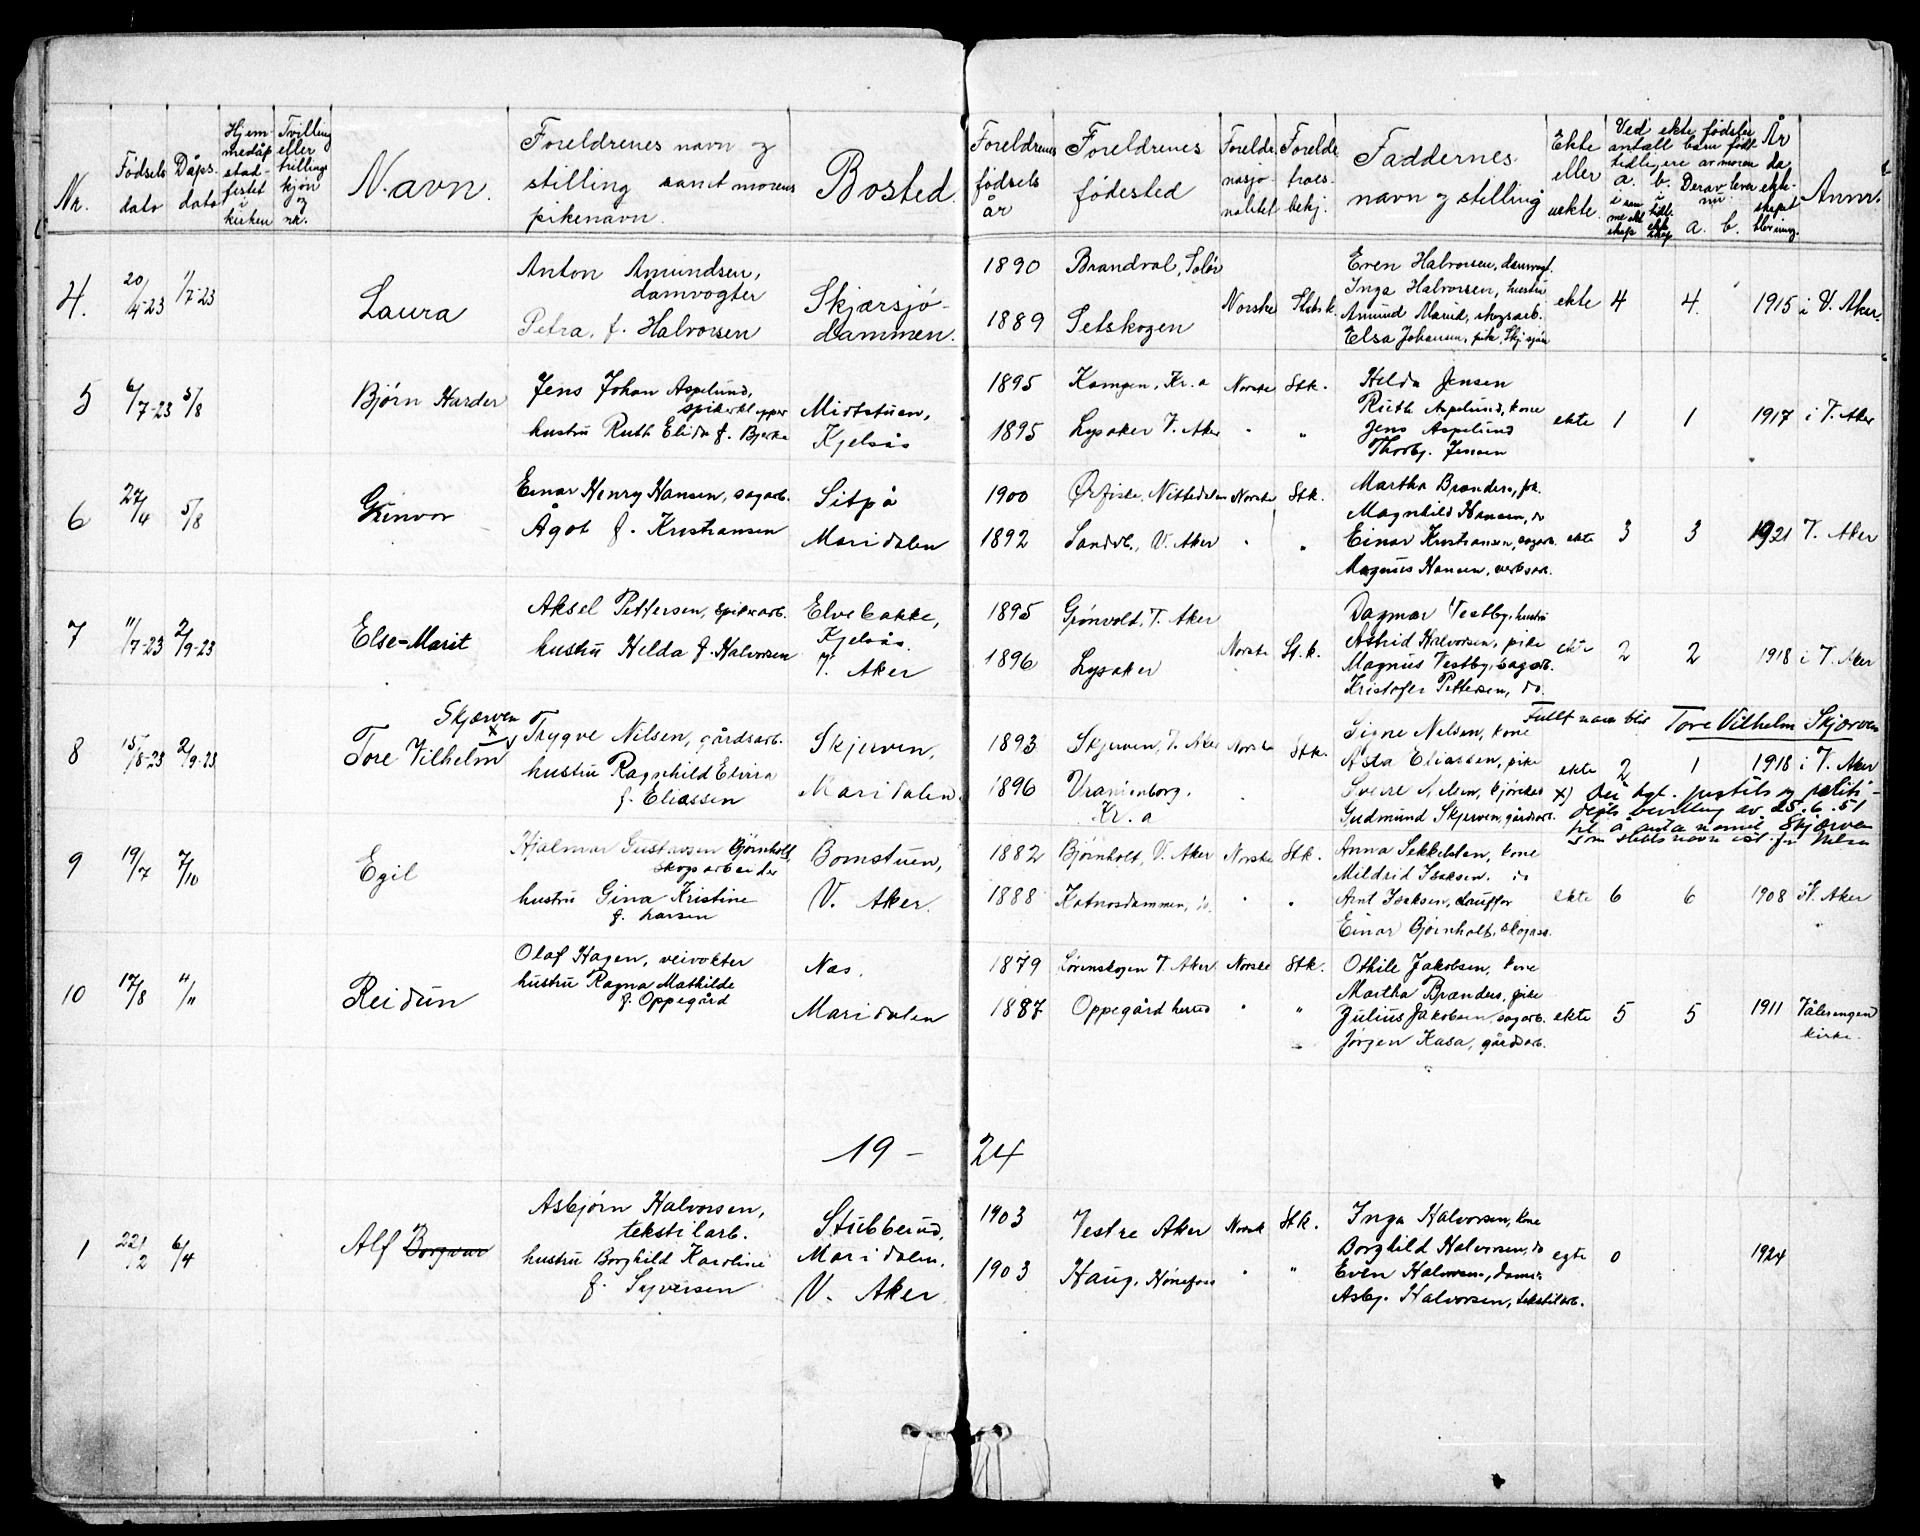 Nr.
Fødsels dato
Dåps dato
Hjemmedåp stadfestet i kirken
Tvilling eller trilling kjøn og nr.
Navn.
Foreldrenes navn og stilling samt morens pikenavn.
Bosted.
Foreldrenes fødsels år
Foreldrenes fødested
Foreldr. nasjonalitet
Foreldr. troesbekj.
Faddernes navn og stilling
Ekte eller uekte.
Ved ekte fødsler antall barn født tidligere av moren
a. i samme ekteskap
b. i tidl. ekteskap
Derav lever nu
a. b.
År da ekteskapet blev inng.
Anm.
4. 20/4-23 1/7-23 Laura
Anton Amundsen, damvogter
Petra, f. Halvorsen
Skjærsjødammen.
1890 Brandval, Solør
1889 Setskogen
Norske Statsk.
Even Halvorsen, damvogt.
Inga Halvorsen, hustru
Amund Marud, skogsarb.
Elsa Johansen, pike, Skj.sjøen
ekte 4 4. 1915 i V. Aker.
5 6/7-23 5/8 Bjørn Harder
Jens Johan Aspelund, spikerklipper
hustru Ruth Elida f. Bjerke
Midtstuen, Kjelsås
1895 Kampen, Kr.a
1895 Lysaker V. Aker
Norske Stk.
Helda Jensen
Ruth Aspelund, kone
Jens Aspelund
Thorbj. Jensen
ekte 1 1 1917 i V. Aker
6 27/4 5/8 Gunvor
Einar Henry Hansen, sagarb.
Ågot f. Kristiansen
Sitpå
Maridalen
1900 Ørfiske, Nittedalen
1892 Sandv., V. Aker
Norske Stk.
Martha Brænders, pk.
Magnhild Hansen, do
Einar Kristiansen, sagarb.
Magnus Hansen, verksarb.
ekte 3 3 1921 V. Aker
7 11/7-23 2/9-23 Else-Marit
Aksel Pettersen, spikerarb.
hustru Helda f. Halvorsen
Elvebakke, Kjelsås. V. Aker
1895 Grønvold, V. Aker
1896 Lysaker
Norske St.k.
Dagmar Vestby, hustru
Astrid Halvorsen, pike
Magnus Vestby, sagarb.
Kristofer Pettersen, do.
ekte 2 2 1918 i V. Aker
8 15/8-23 2/9-23 Tore Vilhelm Skjærven x
Trygve Nilsen, gårdsarb.
hustru Ragnhild Elvira f. Eliassen
Skjerven, Maridalen.
1893 Skjerven, V. Aker
1896 Uranienborg, Kr.a
Norske Stk.
Signe Nilsen, kone
Asta Eliassen, pike
Sverre Nilsen, kjørekar
Gudmund Skjerven, gårdsarb.
Fullt navn blir Tore Vilhelm Skjærven
ekte 2 1 1918 i V. Aker
x) Det kgl. justits og politidep.ts bevilling av 25.6.51
til å anta navnet Skjærven
som slektsnavn ist. for Nilsen
9 19/7 7/10 Egil
Hjalmar Gustavsen Bjørnholt, skogsarbeider
hustru Gina Kristine f. Larsen
Bomstuen, V. Aker.
1882 Bjørnholt, V. Aker
1888 Katnosdammen, do.
Norske Stk.
Anna Sekkelsten, kone
Mildrid Isaksen. do
Arnt Isaksen, chauffør
Einar Bjørnholt, skogsarb.
ekte 6 6 1908 i V. Aker
10 17/8 4/11 Reidun
Olaf Hagen, veivokter
hustru Ragna Mathilde f. Oppegård
Nas. Maridalen
1879 Lørenskogen V. Aker
1887 Oppegård herred
Norske Stk.
Othile Jakobsen, kone
Martha Brænders, pike
Julius Jakobsen, sagarb.
Jørgen Kasa, gårdsarb.
ekte 5 5 1911 Vålerengens kirke.
19 - 24
1 22/2 6/4 Alf Borgvar
Asbjørn Halvorsen, tekstilarb.
hustru Borghild Karoline f. Syversen
Stubberud, Maridalen, V. Aker
1903 Vestre Aker
1903 Haug, Hønefoss
Norsk Stk.
Inga Halvorsen, kone
Borghild Halvorsen, do
Even Halvorsen, damv.
Asbj. Halvorsen, tekstilarb.
egte 0 1924